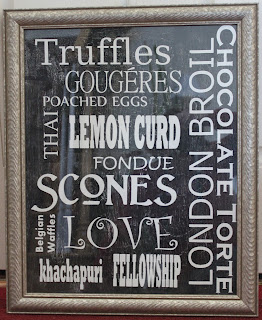 Truffles
GOUGÉRES
POACHED EGGS
THAI
LEMON CURD
FONDUE
SCONES
Belgian
Waffles
LOVE
khachapuri
FELLOWSHIP
LONDON BROIL
CHOCOLATE TORTE